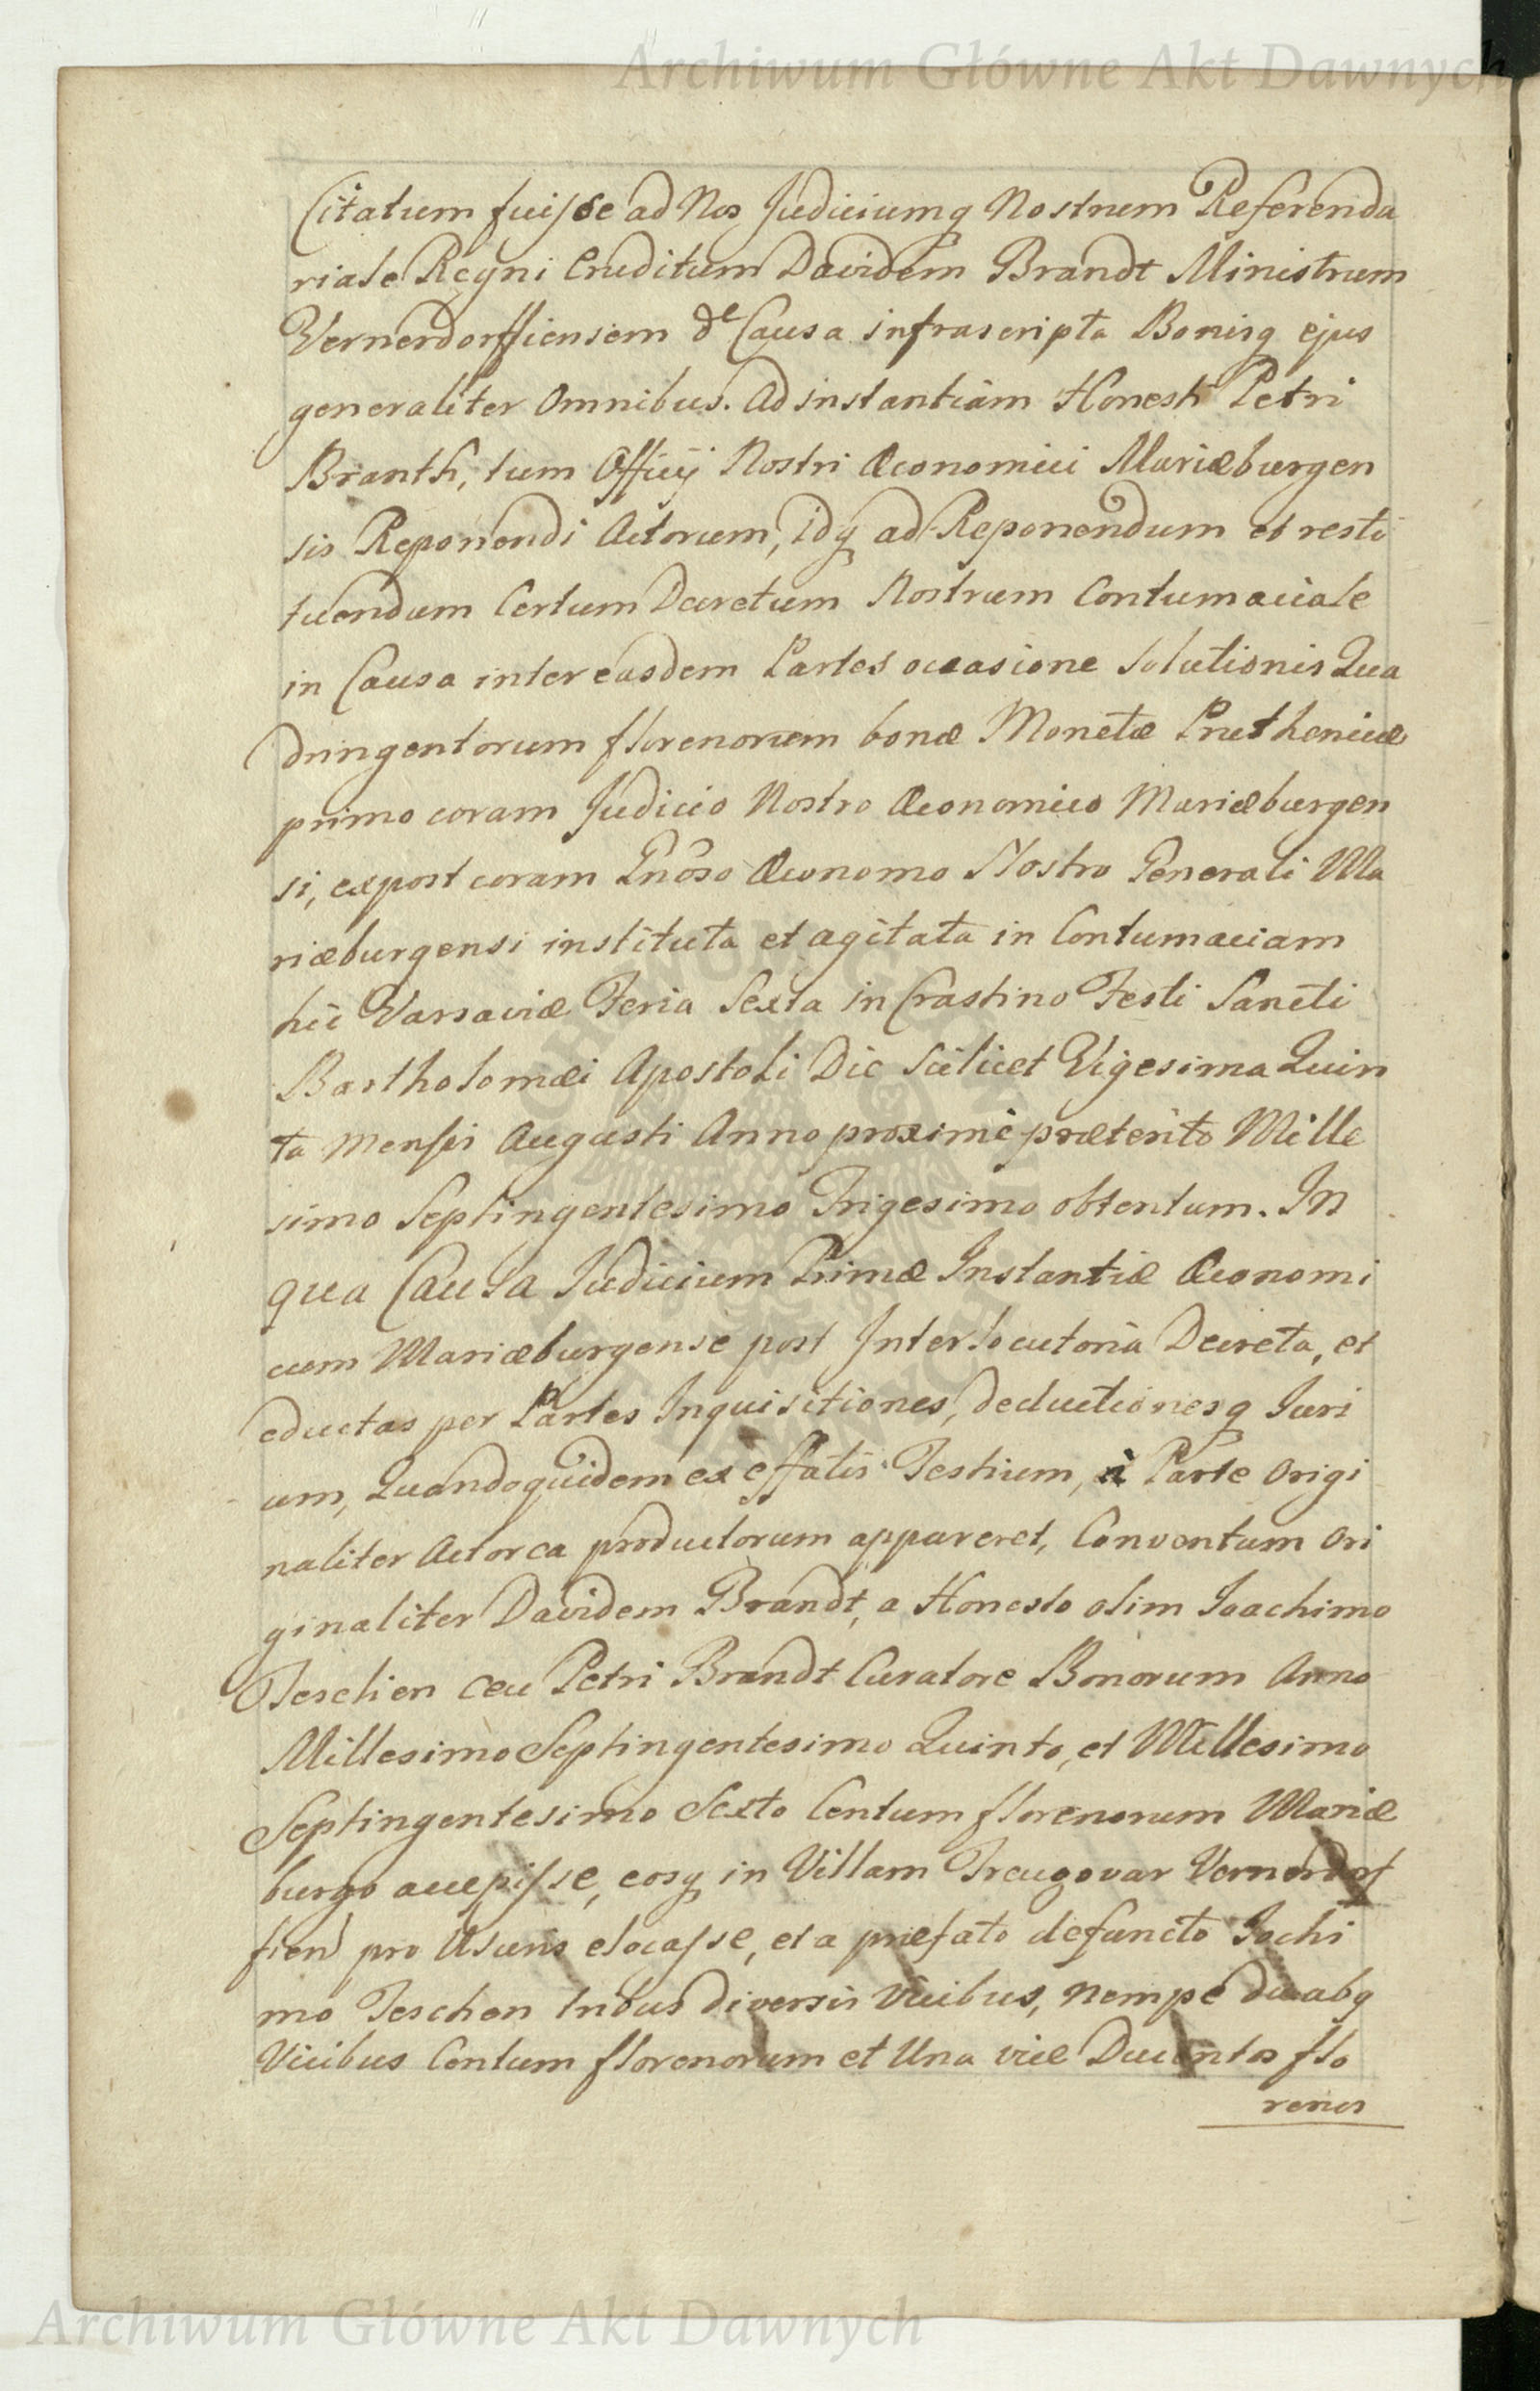 Archiwum Główne Akt Dawnych
Citatum fuisse ad Nos Judiciumq Nostrum Referenda
riale Regni Eruditum Davidem Brandt Ministrum
Vernerdorffiensem de Causa infrascripta Bonisq ejus
generaliter Omnibus. Ad instantiam Honesti Petri
Branth, tum Officij Nostri Œconomici Mariæburgen
sis Reponendi Actorum, idq ad Reponendum et resti
tuendum Certum Decretum Nostrum Contumaciale
in Causa inter easdem Partes occasione Solutionis Qua
dringentorum florenorum bonæ Monetæ Pruthenicæ
primo coram Judicio Nostro Œconomico Mariæburgen
si, expost coram Gnõso Œconomo Nostro Generali Ma
riæburgensi instituta et agitata in Contumaciam
hic Varsaviæ Feria Sexta in Crastino Festi Sancti
Bartholomæi Apostoli Die Scilicet Vigesima Quin
ta Mensis Augusti Anno proximè præterito Mille
simo Septingentesimo Trigesimo obtentum. In
qua Causa Judicium Primæ Instantiæ Œconomi
cum Mariæburgense post Interlocutoria Decreta, et
eductas per Partes Inquisitiones, deductionesq Juri
um, Quandoquidem ex effatis Testium, à Parte Origi
naliter Actorea productorum appareret, Conventum Ori
ginaliter Davidem Brandt, a Honesto olim Joachimo
Teschen ceu Petri Brandt Curatore Bonorum Anno
Millesimo Septingentesimo Quinto, et Millesimo
Septingentesimo Sexto Centum florenorum Mariæ
burgo accepisse, eosq in Villam Vernerdorf
fien pro Usuris elocasse, et a præfato defuncto Jochi
mo Teschen tribus diversis Vicibus, nempe duabq
Vicibus Centum florenorum et Una vice Ducentos flo
renos
Archiwum Główne Akt Dawnych